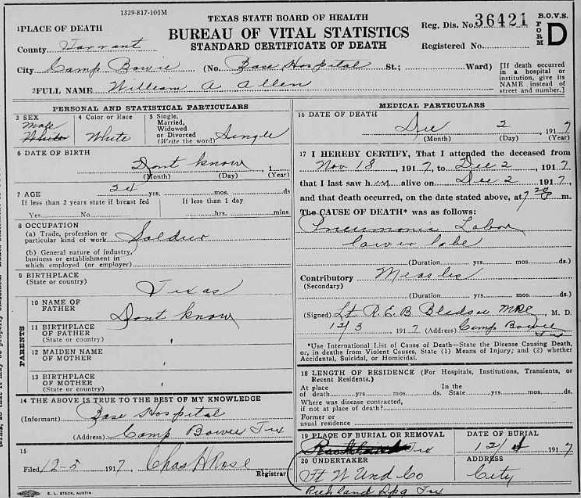 1329-817-101M
TEXAS STATE BOARD OF HEALTH
BUREAU OF VITAL STATISTICS
STANDARD CERTIFICATE OF DEATH
Reg. Dis. No. 36421
B.O.V.S.
FORM D
Registered No.
1 PLACE OF DEATH
County Tarrant
City Camp Bowie (No. Base Hospital St.; Ward)
[If death occurred in a hospital or institution, give its NAME instead of street and number.]
2 FULL NAME William A Allen
PERSONAL AND STATISTICAL PARTICULARS
3 SEX Male
4 Color or Race White
5 Single, Married, Widowed or Divorced (Write the word) Single
6 DATE OF BIRTH
Dont know 1
(Month) (Day) (Year)
7 AGE 24 yrs. mos. ds
If less than 2 years state if breast fed If less than 1 day
Yes No hrs. mins
8 OCCUPATION
(a) Trade, profession or particular kind of work Soldier
(b) General nature of industry, business or establishment in which employed (or employer)
9 BIRTHPLACE
(State or country) Texas
PARENTS
10 NAME OF FATHER Dont know
11 BIRTHPLACE OF FATHER
(State or country)
12 MAIDEN NAME OF MOTHER
13 BIRTHPLACE OF MOTHER
(State or country)
14 THE ABOVE IS TRUE TO THE BEST OF MY KNOWLEDGE
(Informant) Base Hospital
(Address) Camp Bowie Tex
15
Filed 12-5 1917 Chas H Rose
Registrar
E. L. STECK, AUSTIN
MEDICAL PARTICULARS
16 DATE OF DEATH
Dec 2 1917
(Month) (Day) (Year)
17 I HEREBY CERTIFY, That I attended the deceased from
Nov 18 1917 to Dec 2 1917
that I last saw him alive on Dec 2 1917
and that death occurred, on the date stated above, at 7 m.
The CAUSE OF DEATH* was as follows:
Pneumonia Lobar
lower lobe
(Duration) yrs. mos. ds.
Contributory Measles
(Secondary)
(Duration) yrs. mos. ds.
(Signed) Lt R. E. B. Bledsoe MRC M. D.
12/3 1917 (Address) Camp Bowie Tex
*Use International List of Cause of Death—State the Disease Causing Death, or, in deaths from Violent Causes, State (1) Means of Injury; and (2) whether Accidental, Suicidal, or Homicidal.
18 LENGTH OF RESIDENCE (For Hospitals, Institutions, Transients, or Recent Residents.)
At place of death yrs. mos. ds. In the State yrs. mos. ds.
Where was disease contracted, if not at place of death?
Former or usual residence
19 PLACE OF BURIAL OR REMOVAL
Tex
DATE OF BURIAL
12/4 1917
20 UNDERTAKER
Ft W Und Co
ADDRESS
City
Richland Spg Tex